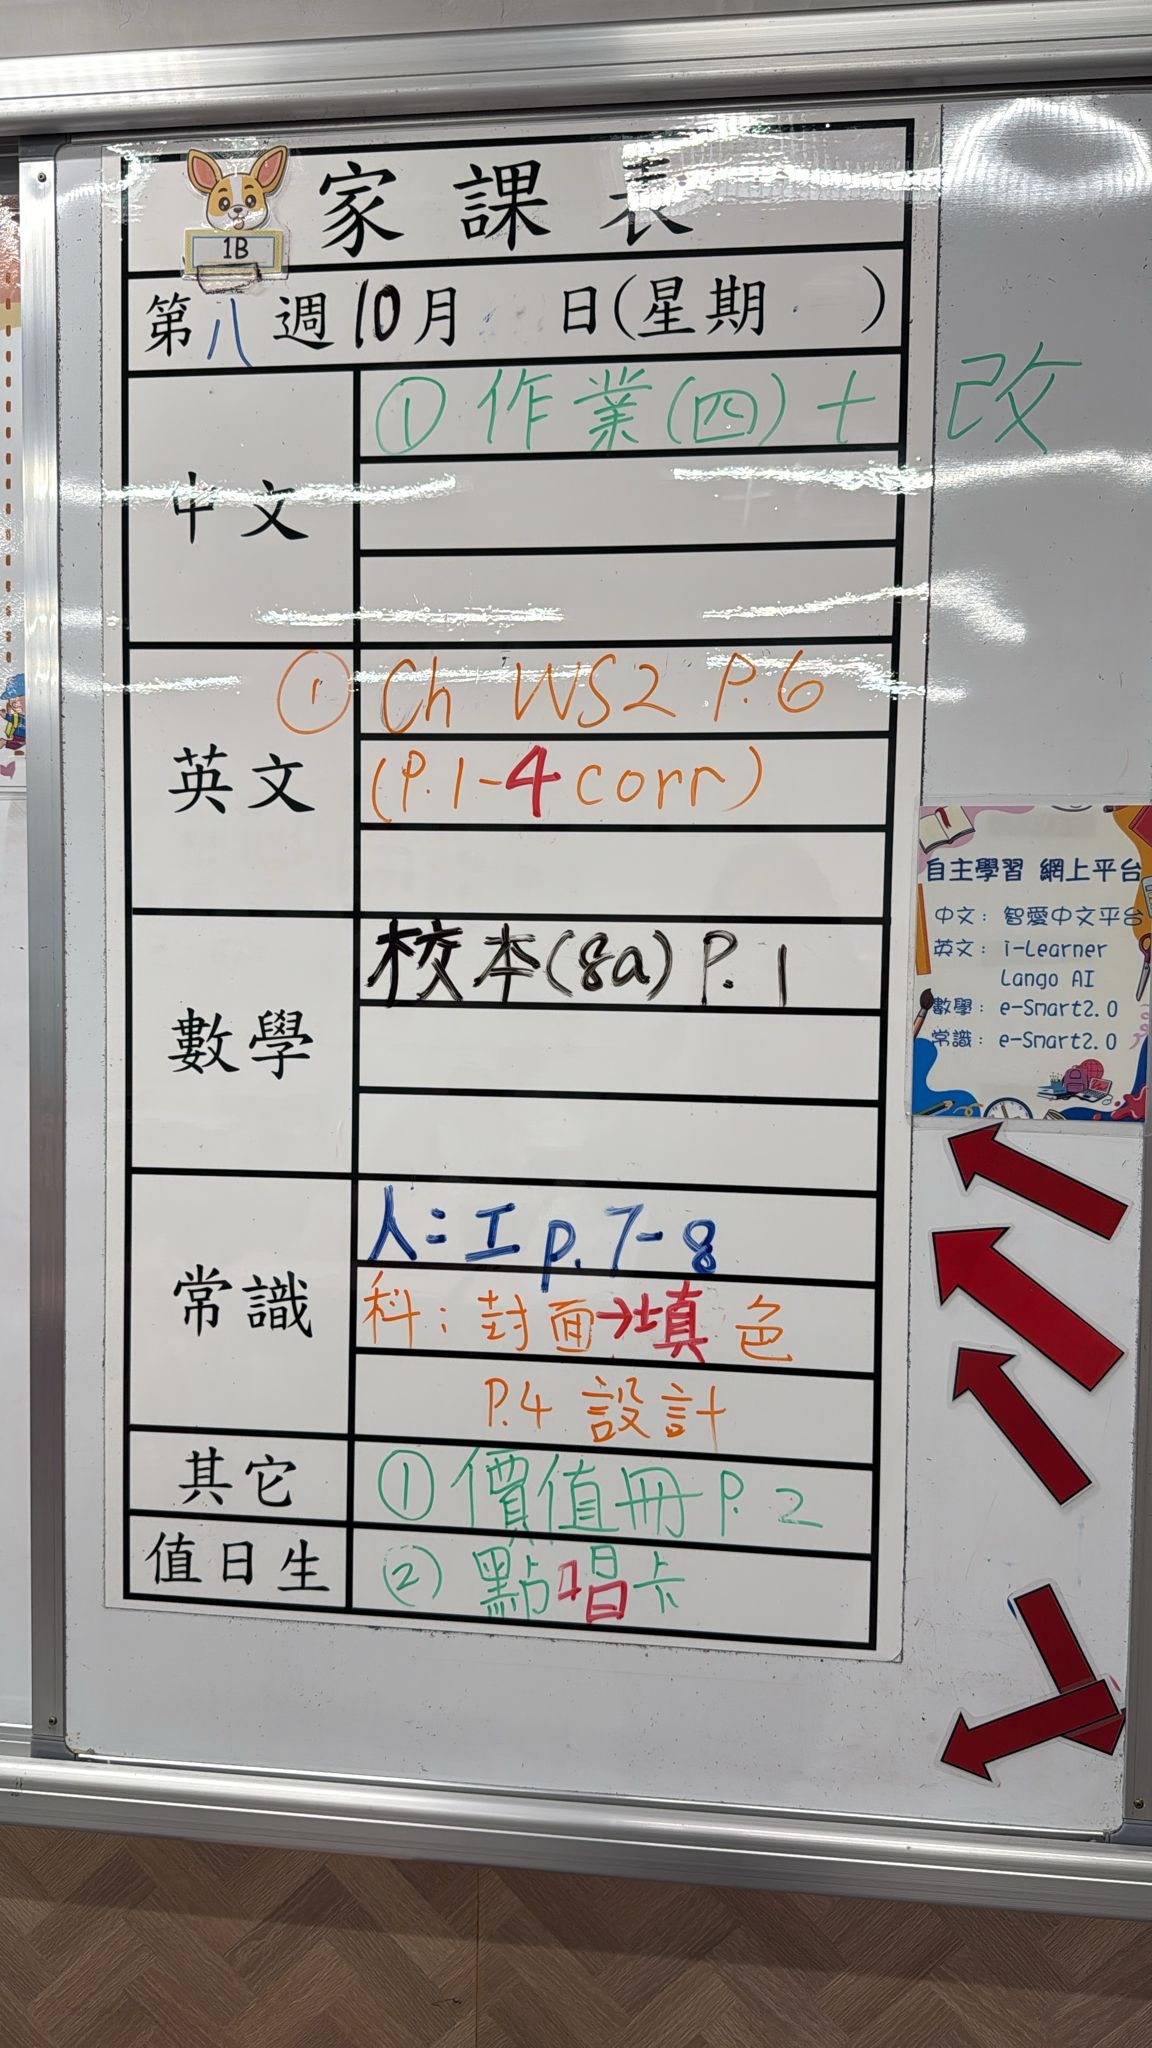 1B
家課表
第八週10月 日(星期 )
中文
①作業(四)+改
英文
①Ch WS2 P.6
(P.1-4 corr)
數學
校本(8a) P.1
常識
人=工 p.7-8
科:封面→填色
P.4 設計
其它
①價值冊 P.2
值日生
②點唱卡
自主學習 網上平台
中文: 智愛中文平台
英文: i-Learner
Lango AI
數學: e-Smart2.0
常識: e-Smart2.0